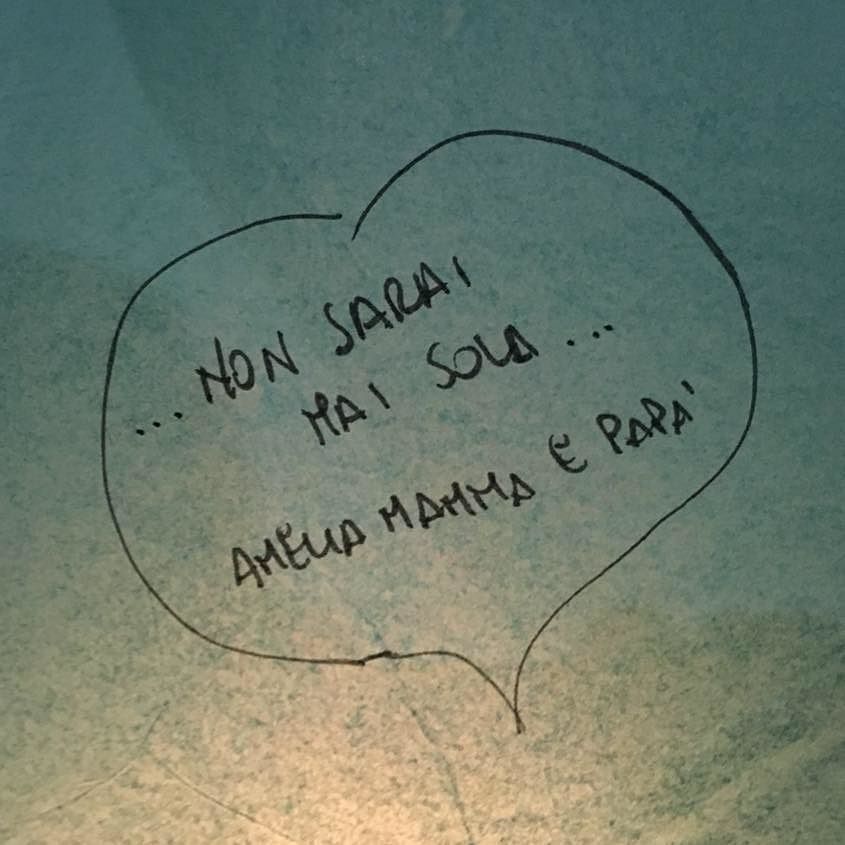 ... NON SARAI
MAI SOLA ...
AMELIA MAMMA E PAPA'